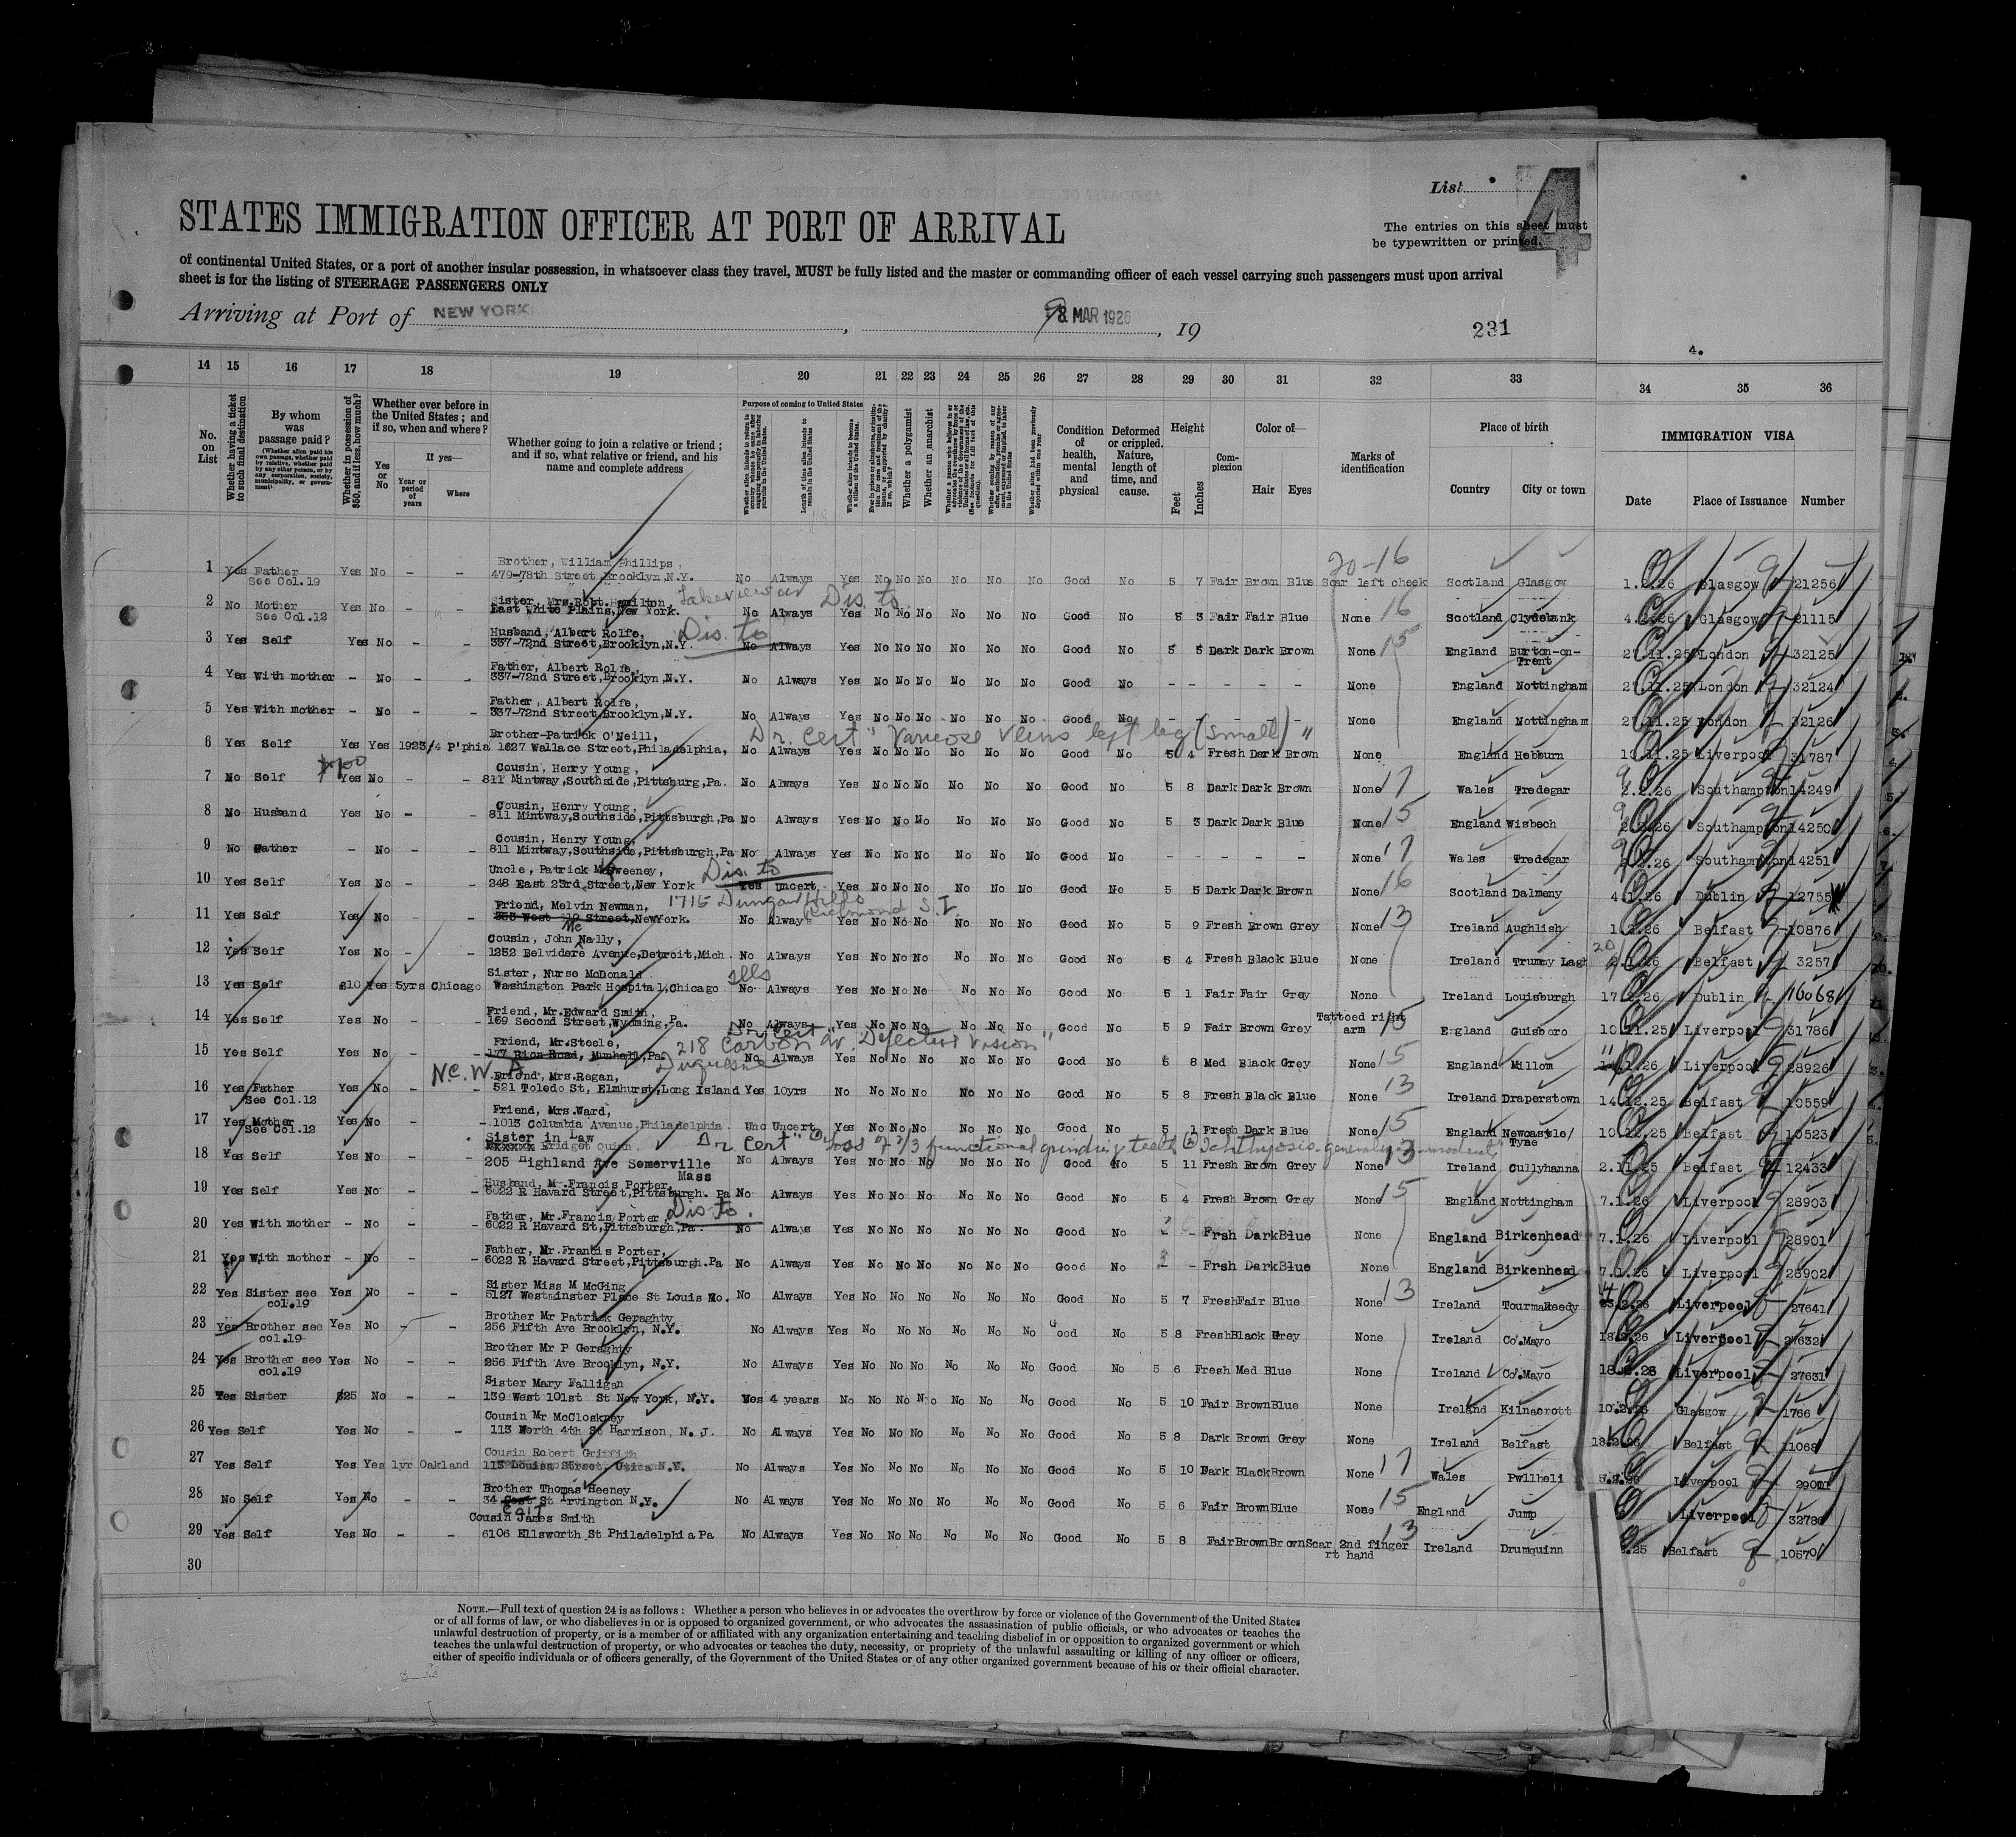 List 4
STATES IMMIGRATION OFFICER AT PORT OF ARRIVAL
The entries on this sheet must
be typewritten or printed.
of continental United States, or a port of another insular possession, in whatsoever class they travel, MUST be fully listed and the master or commanding officer of each vessel carrying such passengers must upon arrival
sheet is for the listing of STEERAGE PASSENGERS ONLY
Arriving at Port of NEW YORK, 8 MAR 1926, 19
231
4.
14 15 16 17 18 19 20 21 22 23 24 25 26 27 28 29 30 31 32 33 34 35 36
No. on List
Whether having a ticket to such final destination
By whom was passage paid?
(Whether alien paid his own passage, whether paid by relative, whether paid by any other person, or by any corporation, society, municipality, or government)
Whether in possession of $50, and if less, how much?
Whether ever before in the United States; and if so, when and where?
Yes or No
If yes—
Year or period of years
Where
Whether going to join a relative or friend; and if so, what relative or friend, and his name and complete address
Purpose of coming to United States
Length of time alien intends to remain in the United States
Whether alien intends to become a citizen of the United States.
Whether a polygamist
Whether an anarchist
Condition of health, mental and physical
Deformed or crippled. Nature, length of time, and cause.
Height
Feet
Inches
Complexion
Color of—
Hair
Eyes
Marks of identification
Place of birth
Country
City or town
IMMIGRATION VISA
Date
Place of Issuance
Number
20-16
1 Yes Father See Col.19 Yes No - - Brother, William Phillips, 479-78th Street, Brooklyn, N.Y. No Always Yes No No No No No No Good No 5 7 Fair Brown Blue Scar left cheek Scotland Glasgow 1.2.26 Glasgow 21256
2 No Mother See Col.12 Yes No - - Sister, Mrs. Robt. Hamilton, East White Plains, New York. Dis. to No Always Yes No No No No No No Good No 5 3 Fair Fair Blue None 16 Scotland Clydebank Glasgow 21115
3 Yes Self Yes No - - Husband, Albert Rolfe, 337-72nd Street, Brooklyn, N.Y. Dis. to No Always Yes No No No No No No Good No 5 5 Dark Dark Brown None 15 England Burton-on-Trent 27.11.25 London 32125
4 Yes With mother - No - - Father, Albert Rolfe, 337-72nd Street, Brooklyn, N.Y. No Always Yes No No No No No No Good No - - - - - None England Nottingham 27.11.25 London 32124
5 Yes With mother - No - - Father, Albert Rolfe, 337-72nd Street, Brooklyn, N.Y. No Always Yes No No No No No No Good No - - - - - None England Nottingham 27.11.25 London 32126
Dr. Cert " Varicose Veins left leg (small) "
6 Yes Self Yes Yes 1923/4 P'phia Brother-Patrick O'Neill, 1627 Wallace Street, Philadelphia, No Always Yes No No No No No No Good No 5 4 Fresh Dark Brown None England Hebburn Liverpool 31787
7 No Self Yes No - - Cousin, Henry Young, 811 Mintway, Southside, Pittsburg, Pa. No Always Yes No No No No No No Good No 5 8 Dark Dark Brown None 17 Wales Tredegar 2.2.26 Southampton 14249
8 No Husband Yes No - - Cousin, Henry Young, 811 Mintway, Southside, Pittsburgh, Pa No Always Yes No No No No No No Good No 5 3 Dark Dark Blue None 15 England Wisbech 2.2.26 Southampton 14250
9 No Father - No - - Cousin, Henry Young, 811 Mintway, Southside, Pittsburgh, Pa No Always Yes No No No No No No Good No - - - - - None 17 Wales Tredegar 2.2.26 Southampton 14251
10 Yes Self Yes No - - Uncle, Patrick McSweeney, 248 East 23rd Street, New York Dis. to Yes uncert. Yes No No No No No No Good No 5 5 Dark Dark Brown None 16 Scotland Dalmeny 4.1.26 Dublin 12755
11 Yes Self Yes No - - Friend, Melvin Newman, West 119 Street, New York. 1715 Dungan Hills Richmond S.I No Always Yes No No No No No No Good No 5 9 Fresh Brown Grey None 13 Ireland Aughlish Belfast 10876
12 Yes Self Yes No - - Cousin, John McNally, 1252 Belvidere Avenue, Detroit, Mich. No Always Yes No No No No No No Good No 5 4 Fresh Black Blue None Ireland Trummy Lagh Belfast 3257
13 Yes Self £10 Yes 5yrs Chicago Sister, Nurse McDonald Washington Park Hospital, Chicago No Always Yes No No No No No No Good No 5 1 Fair Fair Grey None Ireland Louisburgh Dublin 16068
14 Yes Self Yes No - - Friend, Mr. Edward Smith, 169 Second Street, Wyoming, Pa. No Always Yes No No No No No No Good No 5 9 Fair Brown Grey Tattoed right arm 15 England Guisboro 10.11.25 Liverpool 31786
Dr. Cert " Defective Vision "
15 Yes Self Yes No - - Friend, Mr. Steele, 177 Rion Road, Munhall, Pa. 218 Carbon Duquesne No Always Yes No No No No No No Good No 5 8 Med Black Grey None 15 England Millom 11.1.26 Liverpool 28926
16 Yes Father See Col.12 Yes No - - Friend, Mrs. Regan, 521 Toledo St, Elmhurst, Long Island Yes 10yrs No No No No No No No Good No 5 8 Fresh Black Blue None 13 Ireland Draperstown 14.12.25 Belfast 10559
17 Yes Mother See Col.12 Yes No - - Friend, Mrs. Ward, 1013 Columbia Avenue, Philadelphia. Unc Uncert. Yes No No No No No No Good No 5 1 Fresh Dark Blue None 15 England Newcastle/Tyne 10.12.25 Belfast 10523
Dr. Cert " loss of 2/3 functional grinding teeth Ichthyosis
18 Yes Self Yes No - - Sister in Law Bridget Quinn 205 Highland Ave Somerville Mass No Always Yes No No No No No No Good No 5 11 Fresh Brown Grey None 13 Ireland Cullyhanna 2.11.25 Belfast 12433
19 Yes Self Yes No - - Husband, Mr. Francis Porter, 6022 R Havard Street, Pittsburgh. Pa No Always Yes No No No No No No Good No 5 4 Fresh Brown Grey None 15 England Nottingham 7.1.26 Liverpool 28903
20 Yes With mother - No - - Father, Mr. Francis Porter 6022 R Havard St, Pittsburgh, Pa. Dis to. No Always Yes No No No No No No Good No 2 - Frsh Dark Blue None England Birkenhead 7.1.26 Liverpool 28901
21 Yes With mother - No - - Father, Mr. Francis Porter, 6022 R Havard Street, Pittsburgh. Pa No Always Yes No No No No No No Good No 2 - Frsh Dark Blue None England Birkenhead 7.1.26 Liverpool 28902
22 Yes Sister see col.19 Yes No - - Sister Miss M McGing 5127 Westminster Place St Louis Mo. No Always Yes No No No No No No Good No 5 7 Fresh Fair Blue None 13 Ireland Tourmakeedy Liverpool 27641
23 Yes Brother see col.19 Yes No - - Brother Mr Patrick Geraghty 256 Fifth Ave Brooklyn, N.Y. No Always Yes No No No No No No Good No 5 8 Fresh Black Grey None Ireland Co. Mayo Liverpool 27632
24 Yes Brother see col.19 Yes No - - Brother Mr P Geraghty 256 Fifth Ave Brooklyn, N.Y. No Always Yes No No No No No No Good No 5 6 Fresh Med Blue None Ireland Co. Mayo Liverpool 27631
25 Yes Sister $25 No - - Sister Mary Falligan 139 West 101st St New York, N.Y. Yes 4 years No No No No No No No Good No 5 10 Fair Brown Blue None Ireland Kilnacrott Glasgow 1766
26 Yes Self Yes No - - Cousin Mr McCloskney 113 North 4th St Harrison, N.J. No Always Yes No No No No No No Good No 5 8 Dark Brown Grey None Ireland Belfast Belfast 11068
27 Yes Self Yes Yes 1yr Oakland Cousin Robert Griffith 113 Louisa Street, Utica N.Y. No Always Yes No No No No No No Good No 5 10 Dark Black Brown None 17 Wales Pwllheli Liverpool
28 No Self Yes No - - Brother Thomas Heeney 34 St Irvington N.Y. No Always Yes No No No No No No Good No 5 6 Fair Brown Blue None 15 England Jump Liverpool 32780
29 Yes Self Yes No - - Cousin James Smith 6106 Ellsworth St Philadelphia Pa No Always Yes No No No No No No Good No 5 8 Fair Brown Brown Scar 2nd finger rt hand 13 Ireland Drumquinn .25 Belfast 10570
30
NOTE.—Full text of question 24 is as follows: Whether a person who believes in or advocates the overthrow by force or violence of the Government of the United States
or of all forms of law, or who disbelieves in or is opposed to organized government, or who advocates the assassination of public officials, or who advocates or teaches the
unlawful destruction of property, or is a member of or affiliated with any organization entertaining and teaching disbelief in or opposition to organized government or which
teaches the unlawful destruction of property, or who advocates or teaches the duty, necessity, or propriety of the unlawful assaulting or killing of any officer or officers,
either of specific individuals or of officers generally, of the Government of the United States or of any other organized government because of his or their official character.